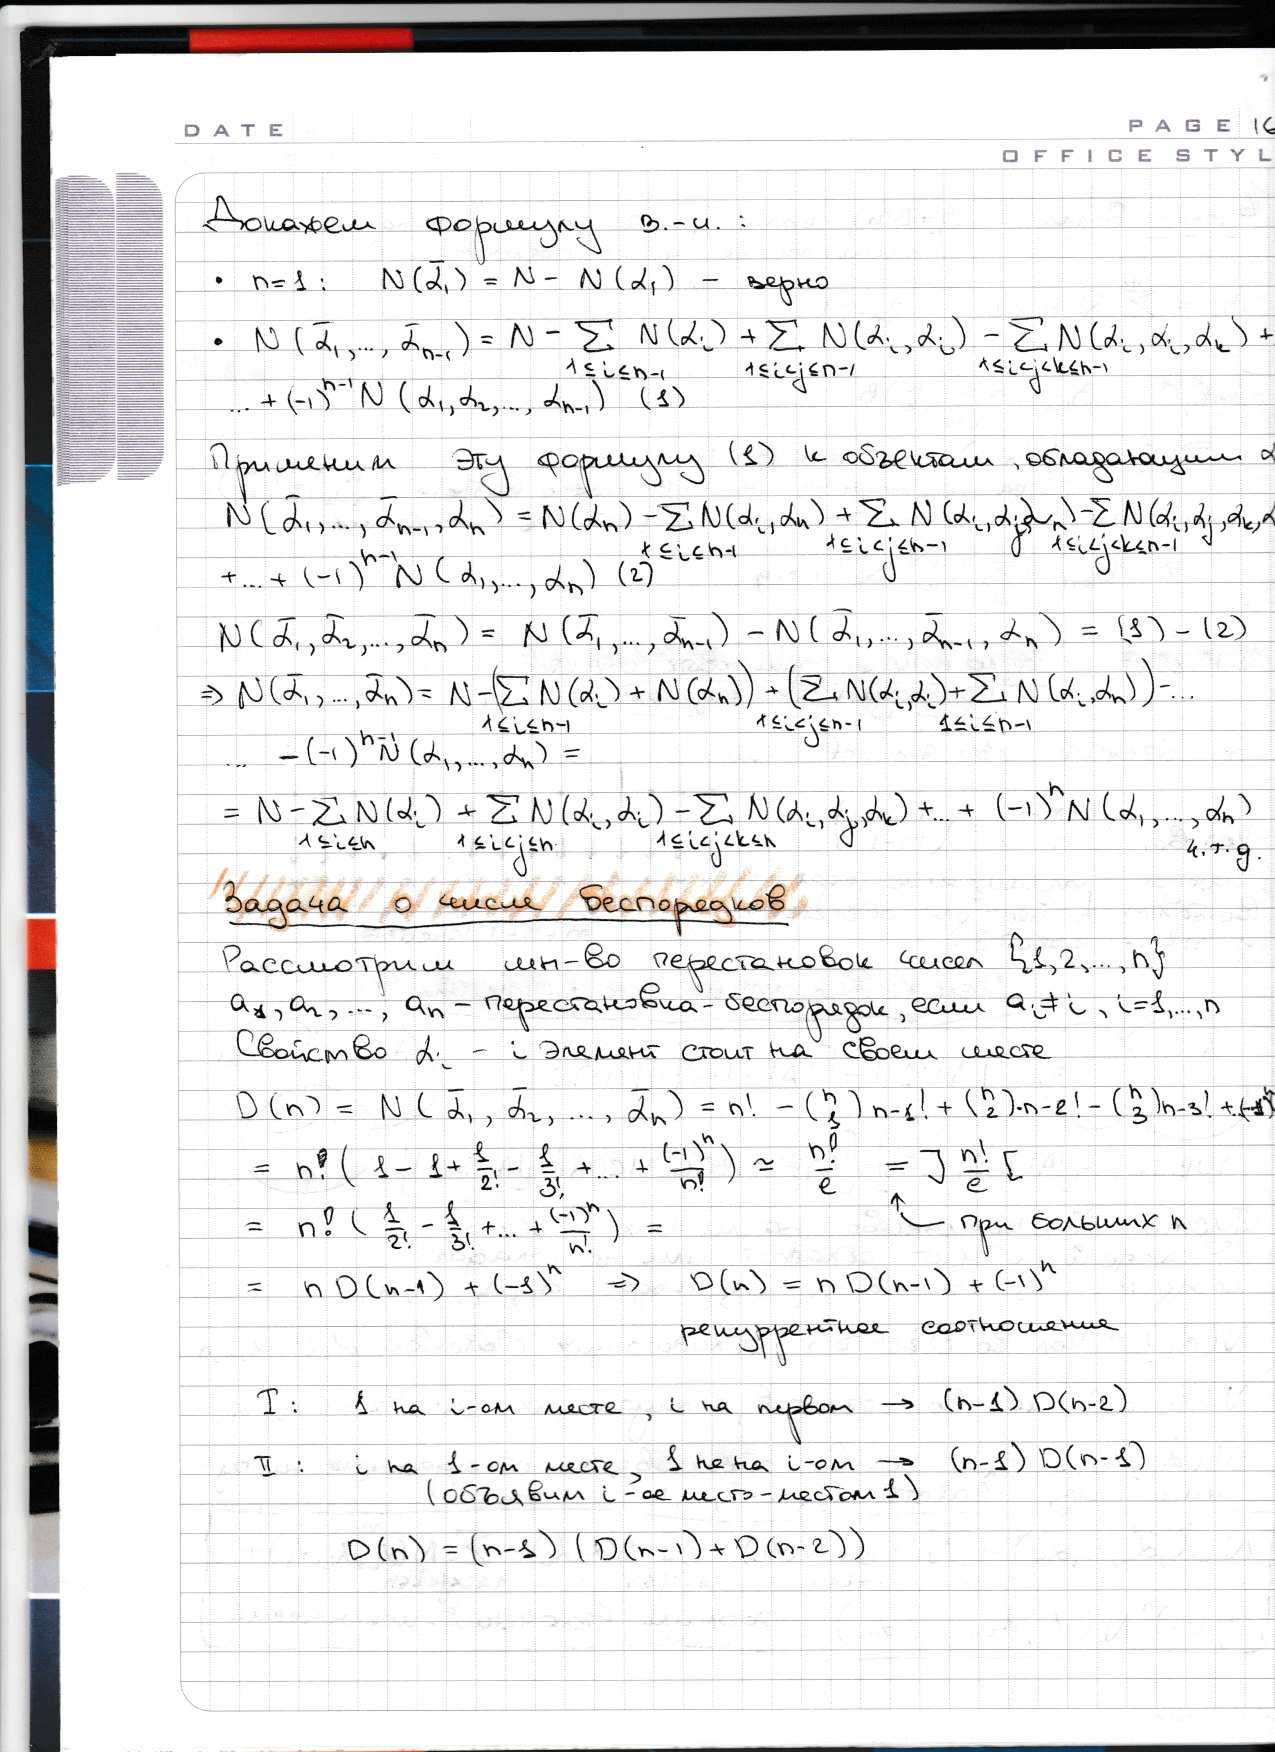 DATE
PAGE 16
OFFICE STYL
Докажем формулу в.-и.:
• n=1: N(ᾱ₁) = N − N(α₁) − верно
• N(ᾱ₁,..., ᾱₙ₋₁) = N − ∑ N(αᵢ) + ∑ N(αᵢ, αⱼ) − ∑ N(αᵢ, αⱼ, αₖ) +
1≤i≤n-1 1≤i<j≤n-1 1≤i<j<k≤n-1
... + (-1)ⁿ⁻¹ N(α₁, α₂,..., αₙ₋₁) (1)
Применим эту формулу (1) к объектам, обладающим α
N(ᾱ₁,..., ᾱₙ₋₁, αₙ) = N(αₙ) − ∑ N(αᵢ, αₙ) + ∑ N(αᵢ, αⱼ, αₙ) − ∑ N(αᵢ, αⱼ, αₖ, α
1≤i≤n-1 1≤i<j≤n-1 1≤i<j<k≤n-1
+...+ (-1)ⁿ⁻¹ N(α₁,..., αₙ) (2)
N(ᾱ₁, ᾱ₂,..., ᾱₙ) = N(ᾱ₁,..., ᾱₙ₋₁) − N(ᾱ₁,..., ᾱₙ₋₁, αₙ) = (1) − (2)
⇒ N(ᾱ₁,..., ᾱₙ) = N − (∑ N(αᵢ) + N(αₙ)) + (∑ N(αᵢ, αⱼ) + ∑ N(αᵢ, αₙ)) − ...
1≤i≤n-1 1≤i<j≤n-1 1≤i≤n-1
... − (-1)ⁿ⁻¹ N(α₁,..., αₙ) =
= N − ∑ N(αᵢ) + ∑ N(αᵢ, αⱼ) − ∑ N(αᵢ, αⱼ, αₖ) +...+ (-1)ⁿ N(α₁,..., αₙ)
1≤i≤n 1≤i<j≤n 1≤i<j<k≤n
ч.т.д.
Задача о числе беспорядков
Рассмотрим мн-во перестановок чисел {1,2,...,n}
a₁, a₂, ..., aₙ − перестановка-беспорядок, если aᵢ ≠ i, i=1,...,n
Свойство αᵢ − i элемент стоит на своем месте
D(n) = N(ᾱ₁, ᾱ₂, ..., ᾱₙ) = n! − (n 1) n-1! + (n 2)·n-2! − (n 3) n-3! +...(-1)ⁿ
= n! (1 − 1 + 1/2! − 1/3! +...+ (-1)ⁿ/n!) ≃ n!/e = ] n!/e [
= n! (1/2! − 1/3! +...+ (-1)ⁿ/n!) = ↑ при больших n
= n D(n-1) + (-1)ⁿ ⇒ D(n) = n D(n-1) + (-1)ⁿ
рекуррентное соотношение
I: 1 на i-ом месте, i на первом → (n-1) D(n-2)
II: i на 1-ом месте, 1 не на i-ом → (n-1) D(n-1)
(объявим i-ое место-местом 1)
D(n) = (n-1) (D(n-1) + D(n-2))